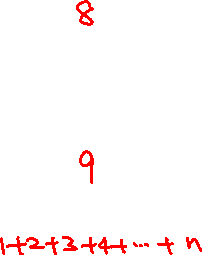 8
9
1+2+3+4+...+ n